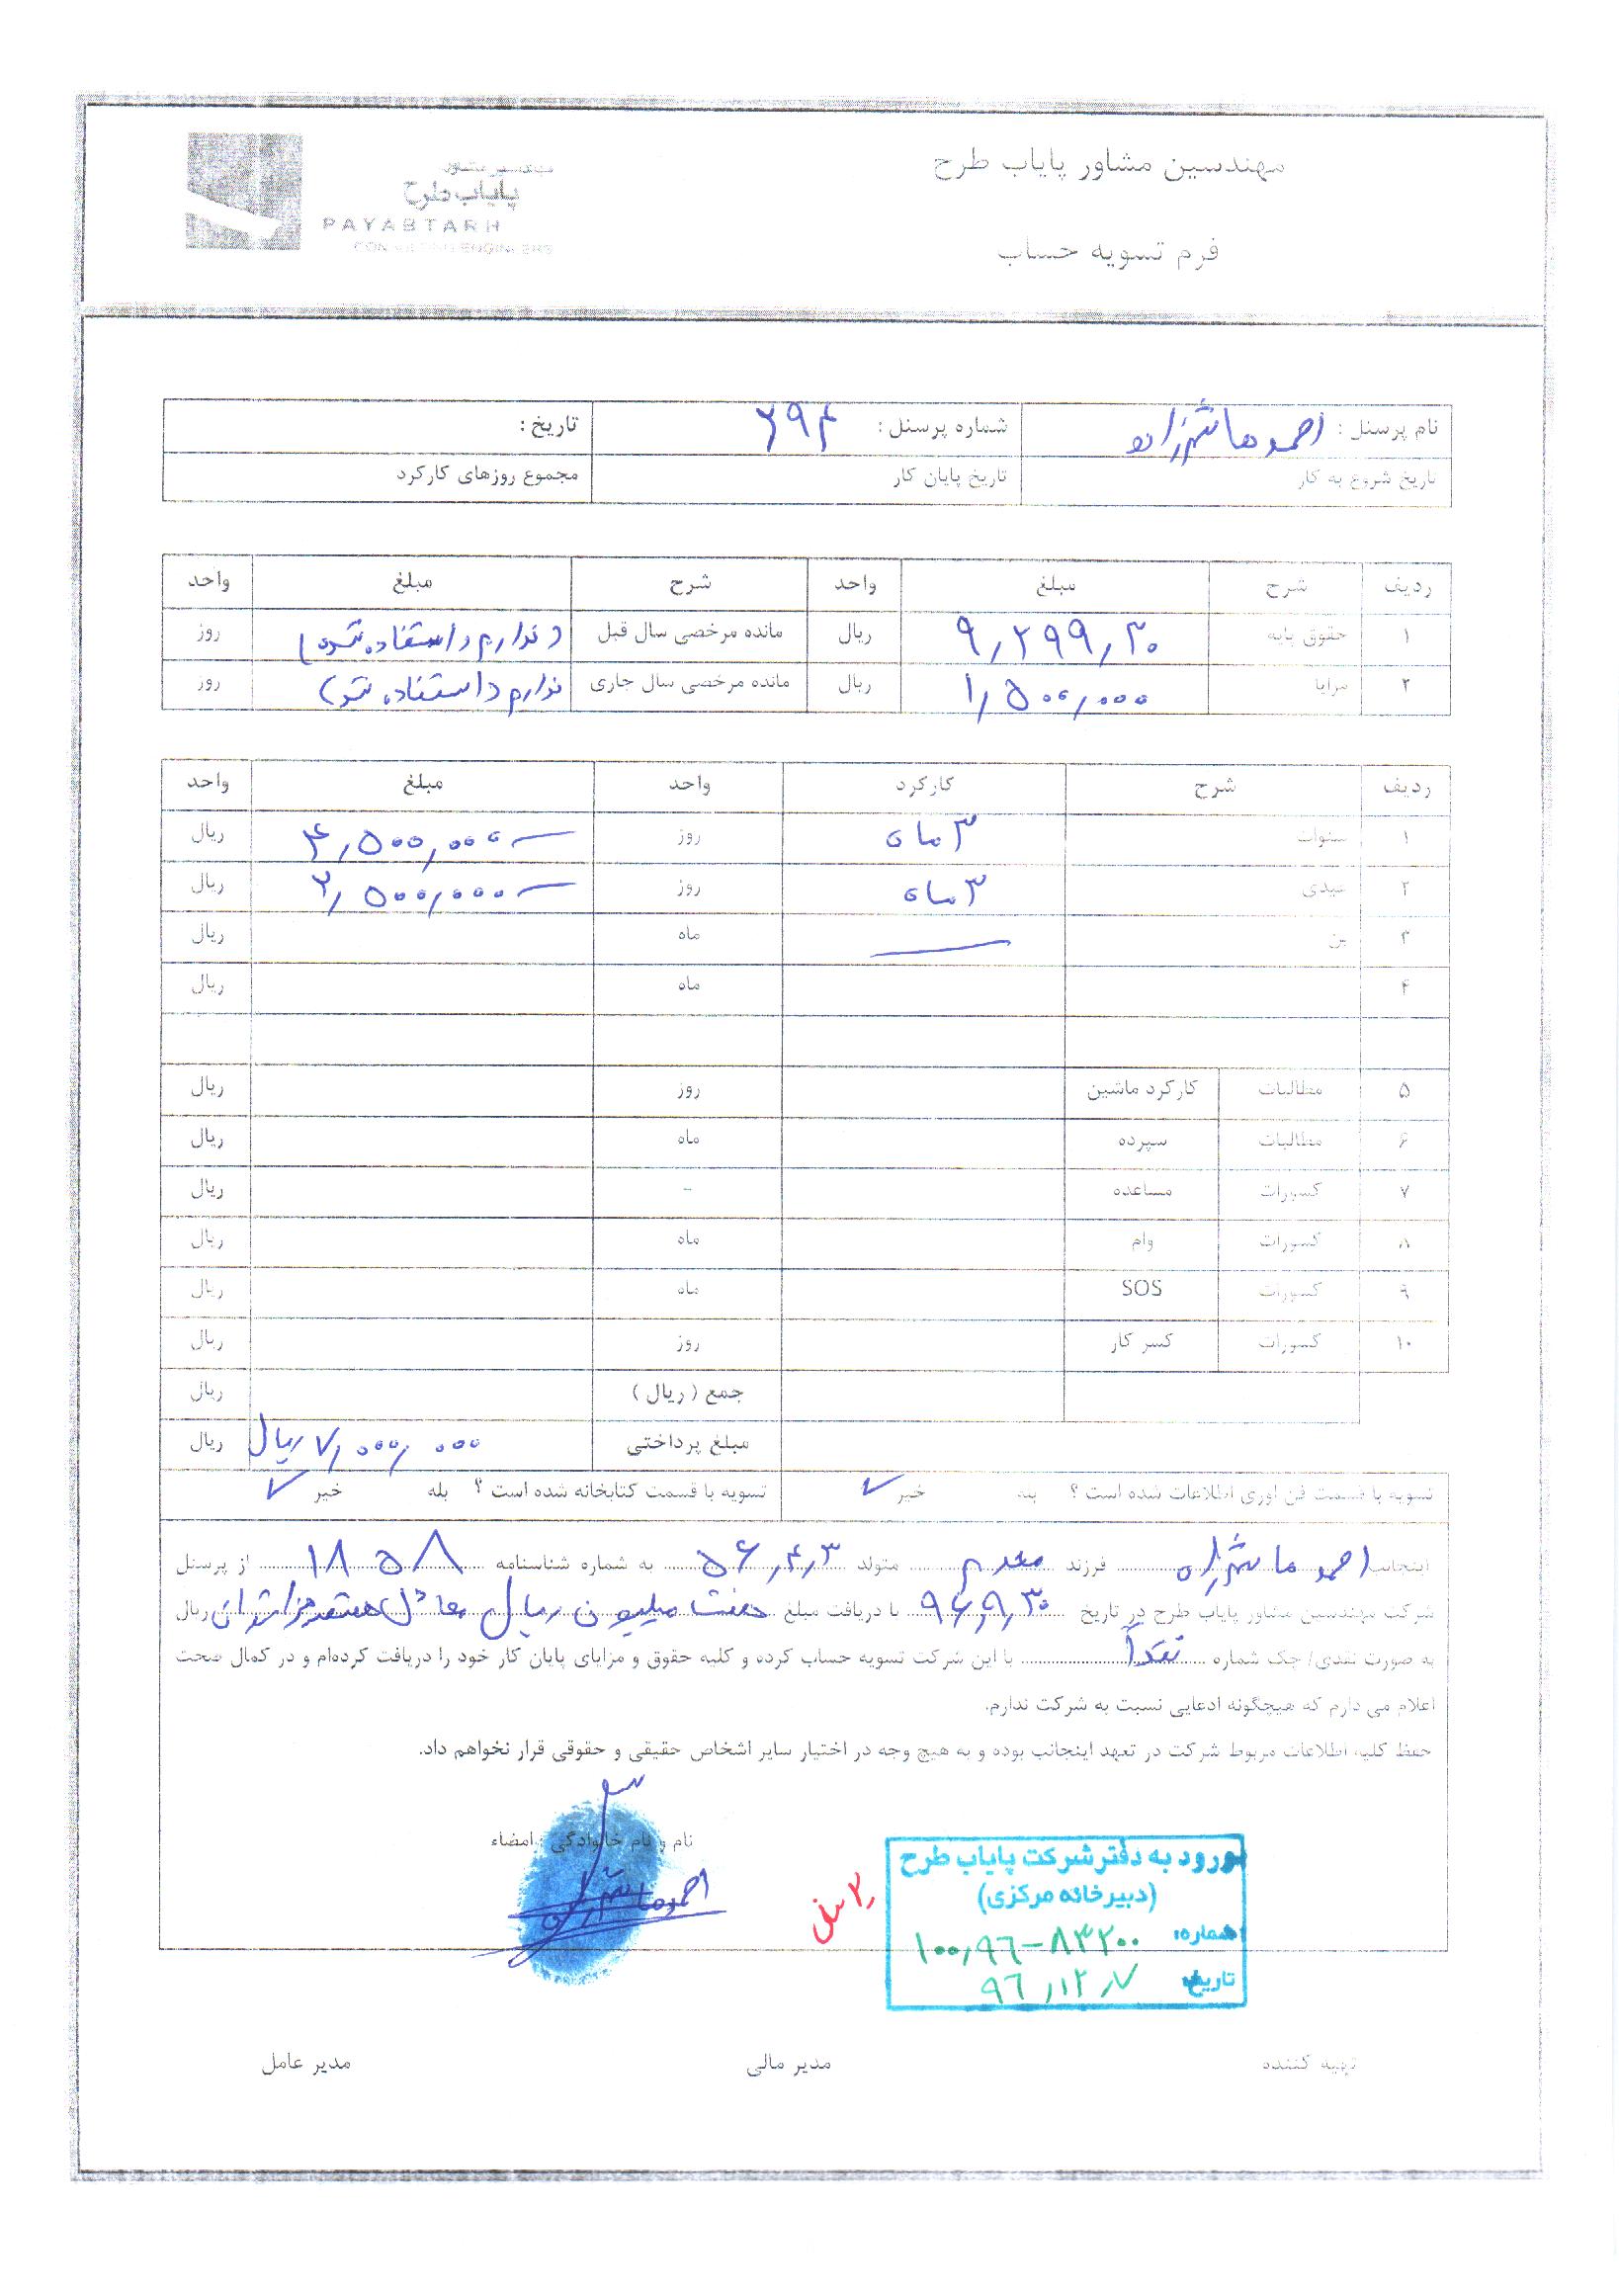 مهندسین مشاور پایاب طرح
پایاب طرح
PAYABTARH
CONSULTING ENGINEERS
فرم تسویه حساب
نام پرسنل : احمد شماره پرسنل : ۶۹۴ تاریخ :
تاریخ شروع به کار تاریخ پایان کار مجموع روزهای کارکرد
ردیف شرح مبلغ واحد شرح مبلغ واحد
۱ حقوق پایه ۹,۲۹۹,۳۰ ریال مانده مرخصی سال قبل ندارم (استفاده شده) روز
۲ مزایا ۱,۵۰۰,۰۰۰ ریال مانده مرخصی سال جاری ندارم (استفاده شد) روز
ردیف شرح کارکرد واحد مبلغ واحد
۱ سنوات ۳ ماه روز ۴,۵۰۰,۰۰۰ ریال
۲ عیدی ۳ ماه روز ۲,۵۰۰,۰۰۰ ریال
۳ بن ماه ریال
۴ ماه ریال
۵ مطالبات کارکرد ماشین روز ریال
۶ مطالبات سپرده ماه ریال
۷ کسورات مساعده - ریال
۸ کسورات وام ماه ریال
۹ کسورات SOS ماه ریال
۱۰ کسورات کسر کار روز ریال
جمع ( ریال ) ریال
مبلغ پرداختی ۷,۰۰۰,۰۰۰ ریال ریال
تسویه با قسمت فن اوری اطلاعات شده است ؟ بله خیر ✓ تسویه با قسمت کتابخانه شده است ؟ بله خیر ✓
اینجانب احمد فرزند متولد ۵۶,۴,۳ به شماره شناسنامه ۱۸۵۸ از پرسنل
شرکت مهندسین مشاور پایاب طرح در تاریخ ۹۶,۹,۳۰ با دریافت مبلغ هفت میلیون ریال معادل هفتصد هزار تومان ریال
به صورت نقدی/ چک شماره نقداً با این شرکت تسویه حساب کرده و کلیه حقوق و مزایای پایان کار خود را دریافت کرده‌ام و در کمال صحت
اعلام می دارم که هیچگونه ادعایی نسبت به شرکت ندارم.
حفظ کلیه اطلاعات مربوط شرکت در تعهد اینجانب بوده و به هیچ وجه در اختیار سایر اشخاص حقیقی و حقوقی قرار نخواهم داد.
نام و نام خانوادگی : امضاء
احمد
ورود به دفتر شرکت پایاب طرح
(دبیرخانه مرکزی)
شماره: ۱۰۰,۹۶-۸۳۲۰۰
تاریخ: ۹۶,۱۲,۷
تهیه کننده مدیر مالی مدیر عامل